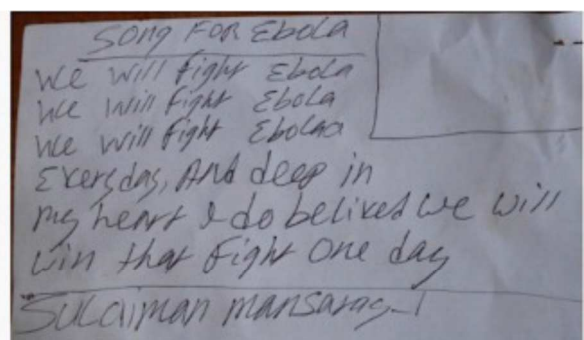 Song FOR Ebola
We will fight Ebola
We will fight Ebola
We will fight Ebolaa
Everyday, And deep in
my heart I do belived we will
win that fight One day
Sulaiman mansaray